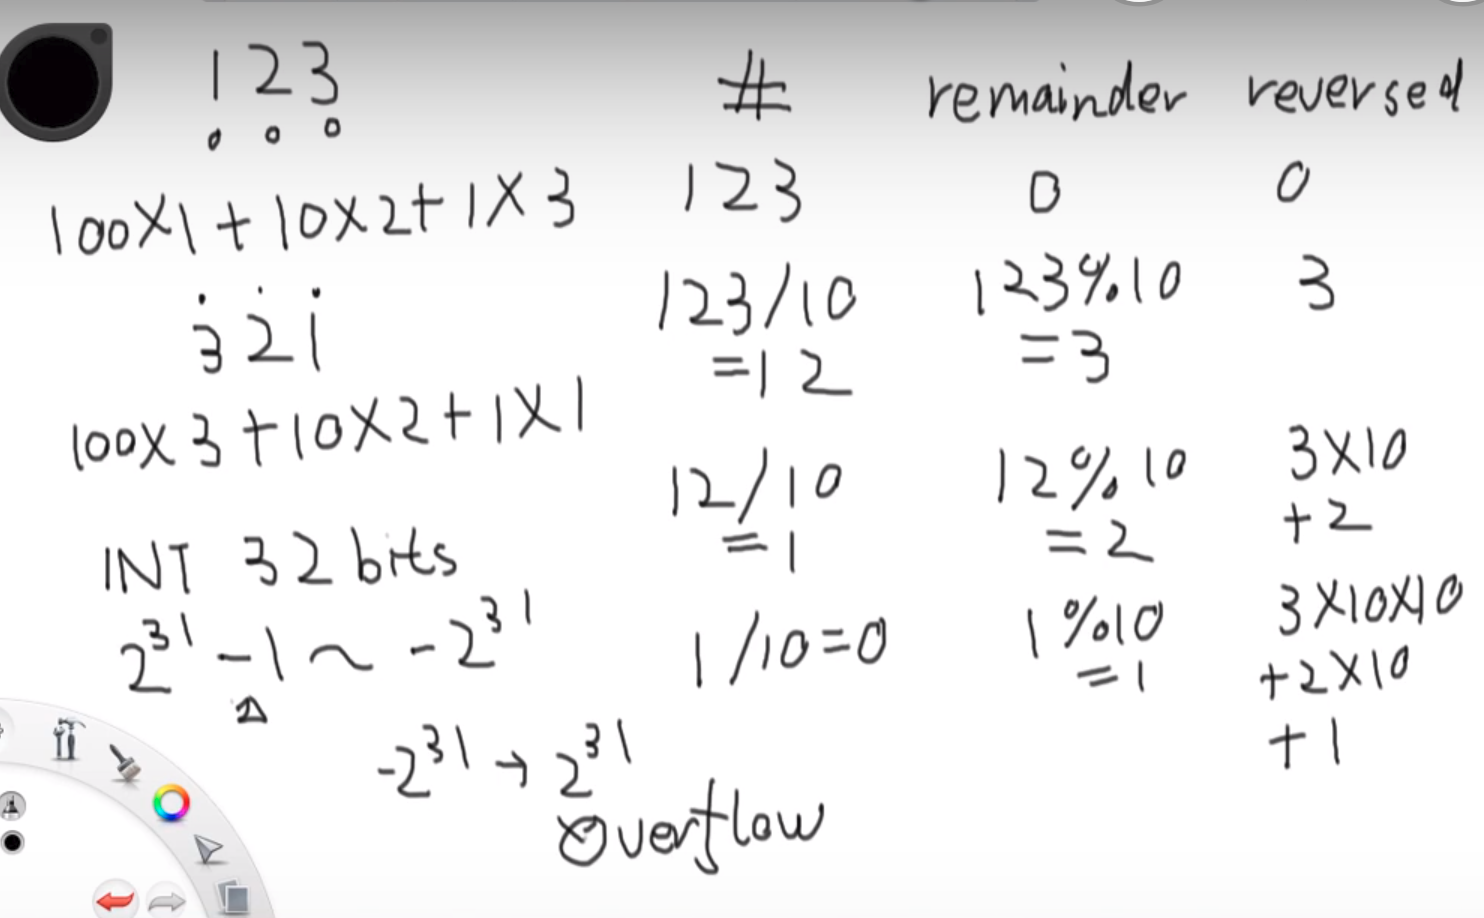 123
100X1+10X2+1X3
321
100X3+10X2+1X1
INT 32bits
2^31-1~-2^31
-2^31→2^31
Overflow
# remainder reversed
123 0 0
123/10 123%10 3
=12 =3
12/10 12%10 3X10
=1 =2 +2
1/10=0 1%10 3X10X10
=1 +2X10
+1